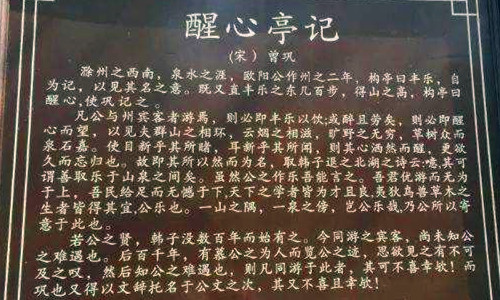 醒心亭记
(宋) 曾巩
滁州之西南，泉水之涯，欧阳公作州之二年，构亭曰丰乐，自
为记，以见其名之意。既又直丰乐之东几百步，得山之高，构亭曰
醒心，使巩记之。
凡公与州宾客者游焉，则必即丰乐以饮;或醉且劳矣，则必即醒
心而望，以见夫群山之相环，云烟之相滋，旷野之无穷，草树众而
泉石嘉。使目新乎其所睹，耳新乎其所闻，则其心洒然而醒，更欲
久而忘归也。故即其所以然而为名，取韩子退之北湖之诗云.噫.其可
谓善取乐于山泉之间矣。虽然公之作乐吾能言之。吾君优游而无为
于上，吾民给足而无憾于下,天下之学者皆为才且良,夷狄鸟兽草木之
生者皆得其宜,公乐也。一山之隅，一泉之傍，岂公乐哉,乃公所以寄
意于此也。
若公之贤，韩子没数百年而始有之。今同游之宾客，尚未知公
之难遇也。后百千年，有慕公之为人而览公之迹，思欲见之有不可
及之叹，然后知公之难遇也，则凡同游于此者，其可不喜幸欤！而
巩也又得以文辞托名于公文之次，其又不喜且幸欤！